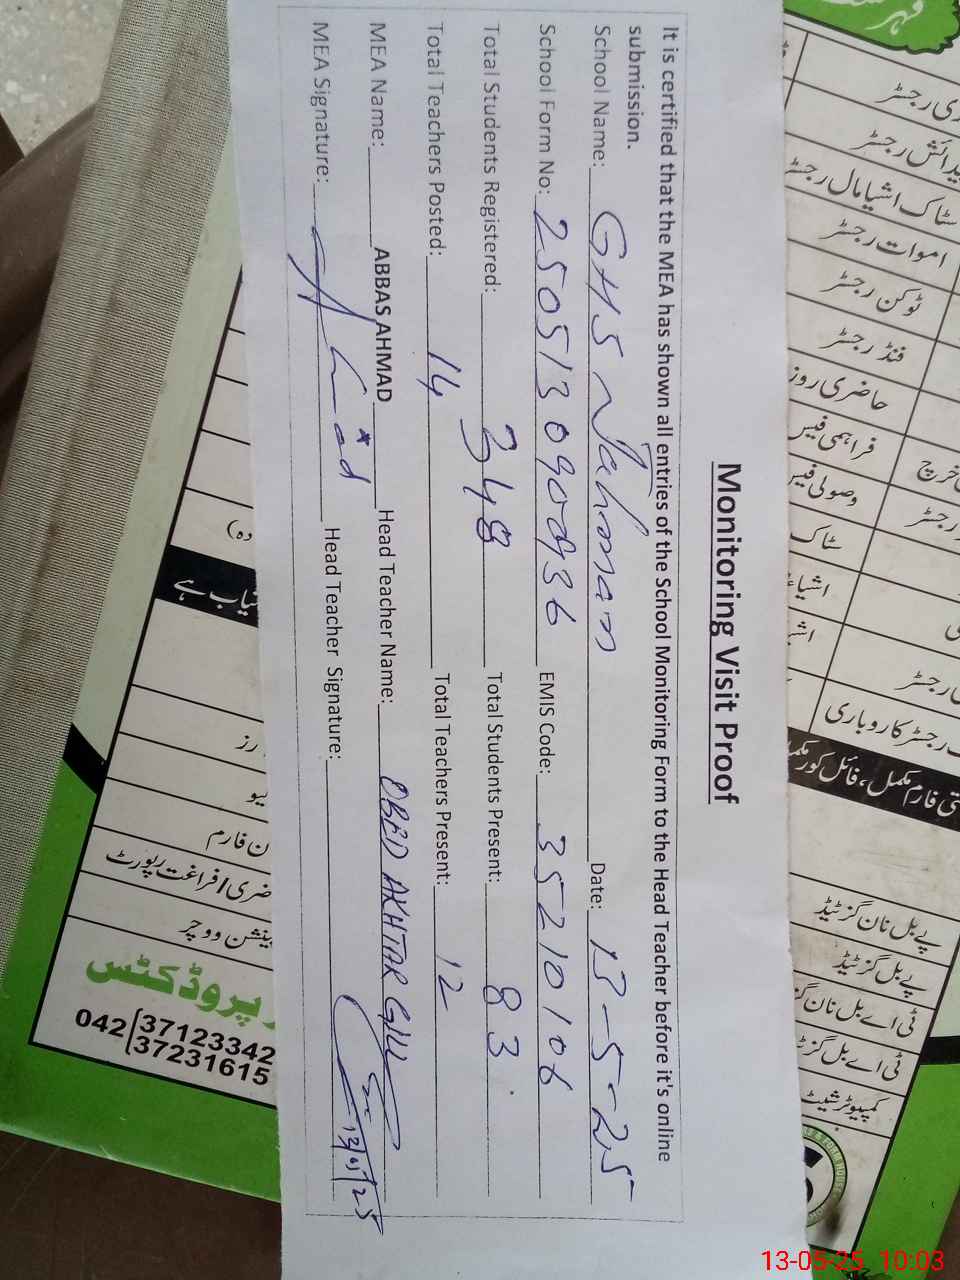 Monitoring Visit Proof
It is certified that the MEA has shown all entries of the School Monitoring Form to the Head Teacher before it's online
submission.
School Name: GHS Jahman Date: 13-5-25
School Form No: 2505130900936 EMIS Code: 35210106
Total Students Registered: 348 Total Students Present: 83
Total Teachers Posted: 14 Total Teachers Present: 12
MEA Name: ABBAS AHMAD Head Teacher Name: OBED AKHTAR GILL
MEA Signature: Head Teacher Signature:
پیدائش رجسٹر
سٹاک اشیا مال رجسٹر
اموات رجسٹر
ٹوکن رجسٹر
فنڈ رجسٹر
حاضری روز
فراہمی فیس
وصولی فیس
سٹاک
خرچ
رجسٹر
رجسٹر
رجسٹر کاروباری
پے بل نان گزٹیڈ
پے بل گزٹیڈ
ٹی اے بل نان گز
ٹی اے بل گزٹ
کمپیوٹر شیٹ
یاب ہے
رز
ن فارم
ضری / فراغت رپورٹ
پنشن ووچر
پروڈکٹس
042 37123342
37231615
13-05-25 10:03